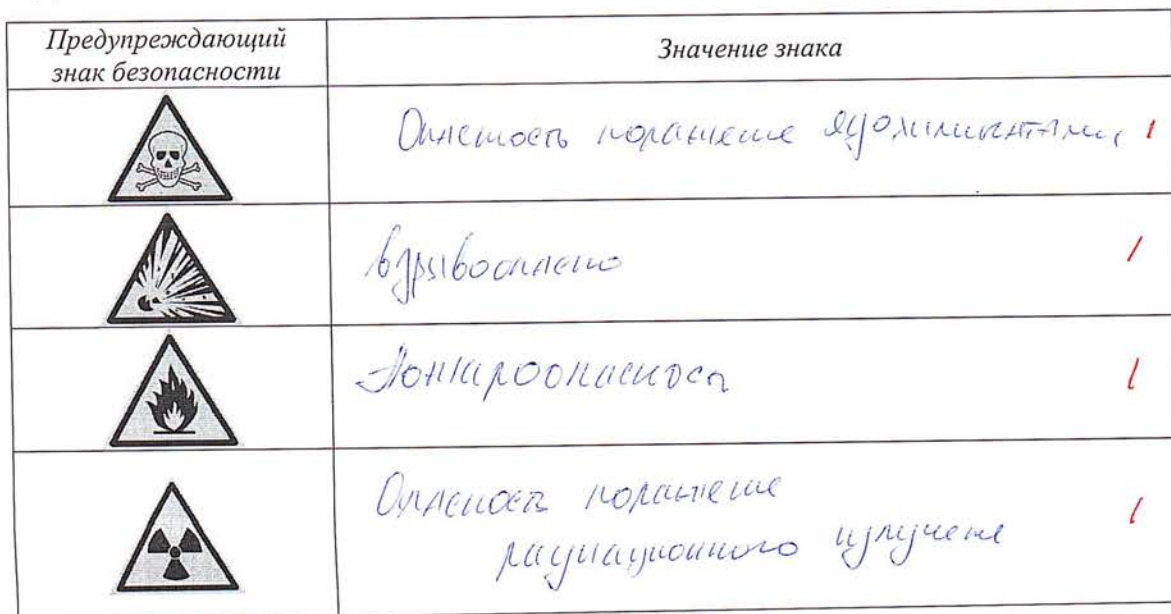 Предупреждающий
знак безопасности
Значение знака
Опасность поражение ядохимикатами 1
взрывоопасно 1
Пожароопасность 1
Опасность поражение
радиационного излучене 1